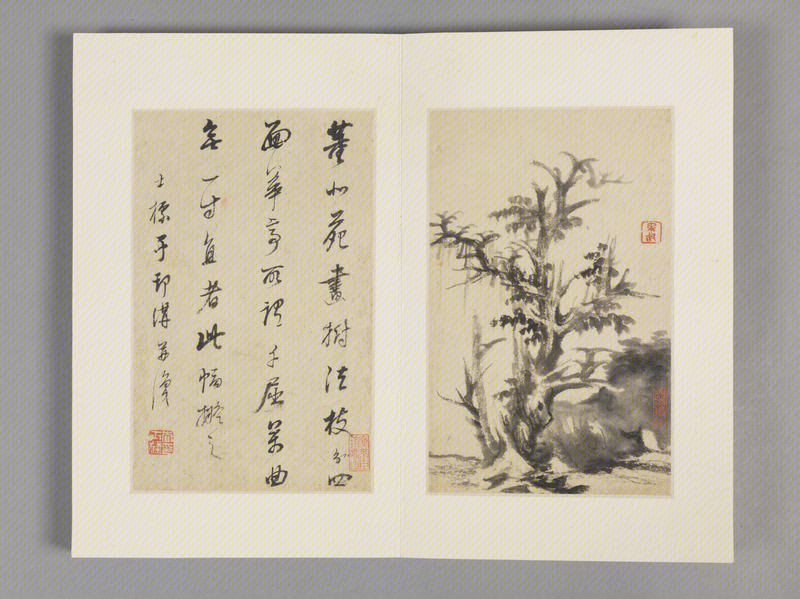 董北苑畫樹法枝分四
面華亭所謂千屈萬曲
無一寸直者此幅擬之
士標于邗溝